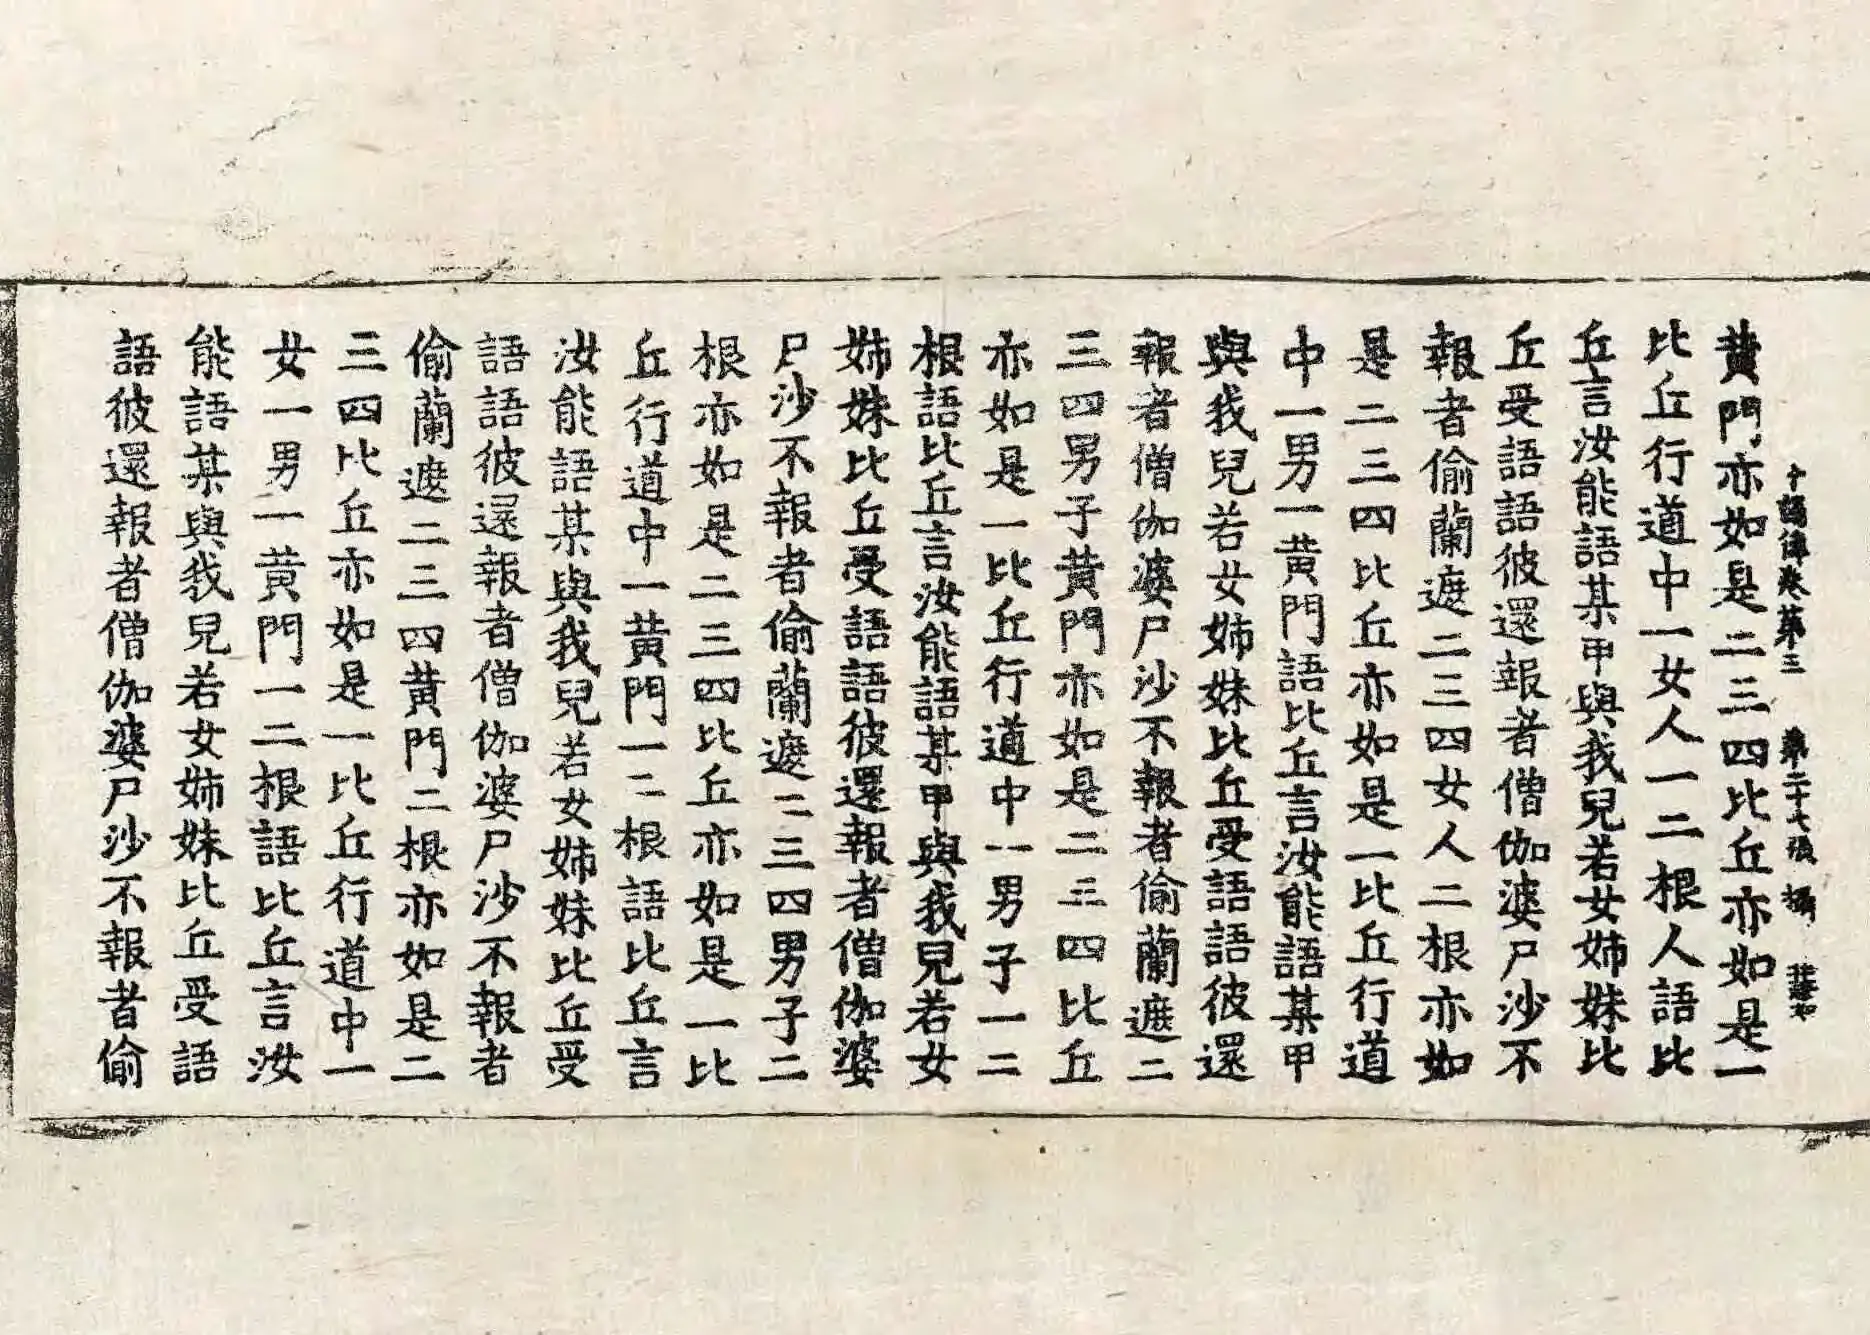 十誦律卷第三 第二十七張 攝
黃門亦如是二三四比丘亦如是一
比丘行道中一女人一二根人語比
丘言汝能語某甲與我兒若女姉妹比
丘受語語彼還報者僧伽婆尸沙不
報者偷蘭遮二三四女人二根亦如
是二三四比丘亦如是一比丘行道
中一男一黃門語比丘言汝能語某甲
與我兒若女姉妹比丘受語語彼還
報者僧伽婆尸沙不報者偷蘭遮二
三四男子黃門亦如是二三四比丘
亦如是一比丘行道中一男子一二
根語比丘言汝能語某甲與我兒若女
姉妹比丘受語語彼還報者僧伽婆
尸沙不報者偷蘭遮二三四男子二
根亦如是二三四比丘亦如是一比
丘行道中一黃門一二根語比丘言
汝能語某與我兒若女姉妹比丘受
語語彼還報者僧伽婆尸沙不報者
偷蘭遮二三四黃門二根亦如是二
三四比丘亦如是一比丘行道中一
女一男一黃門一二根語比丘言汝
能語某與我兒若女姉妹比丘受語
語彼還報者僧伽婆尸沙不報者偷